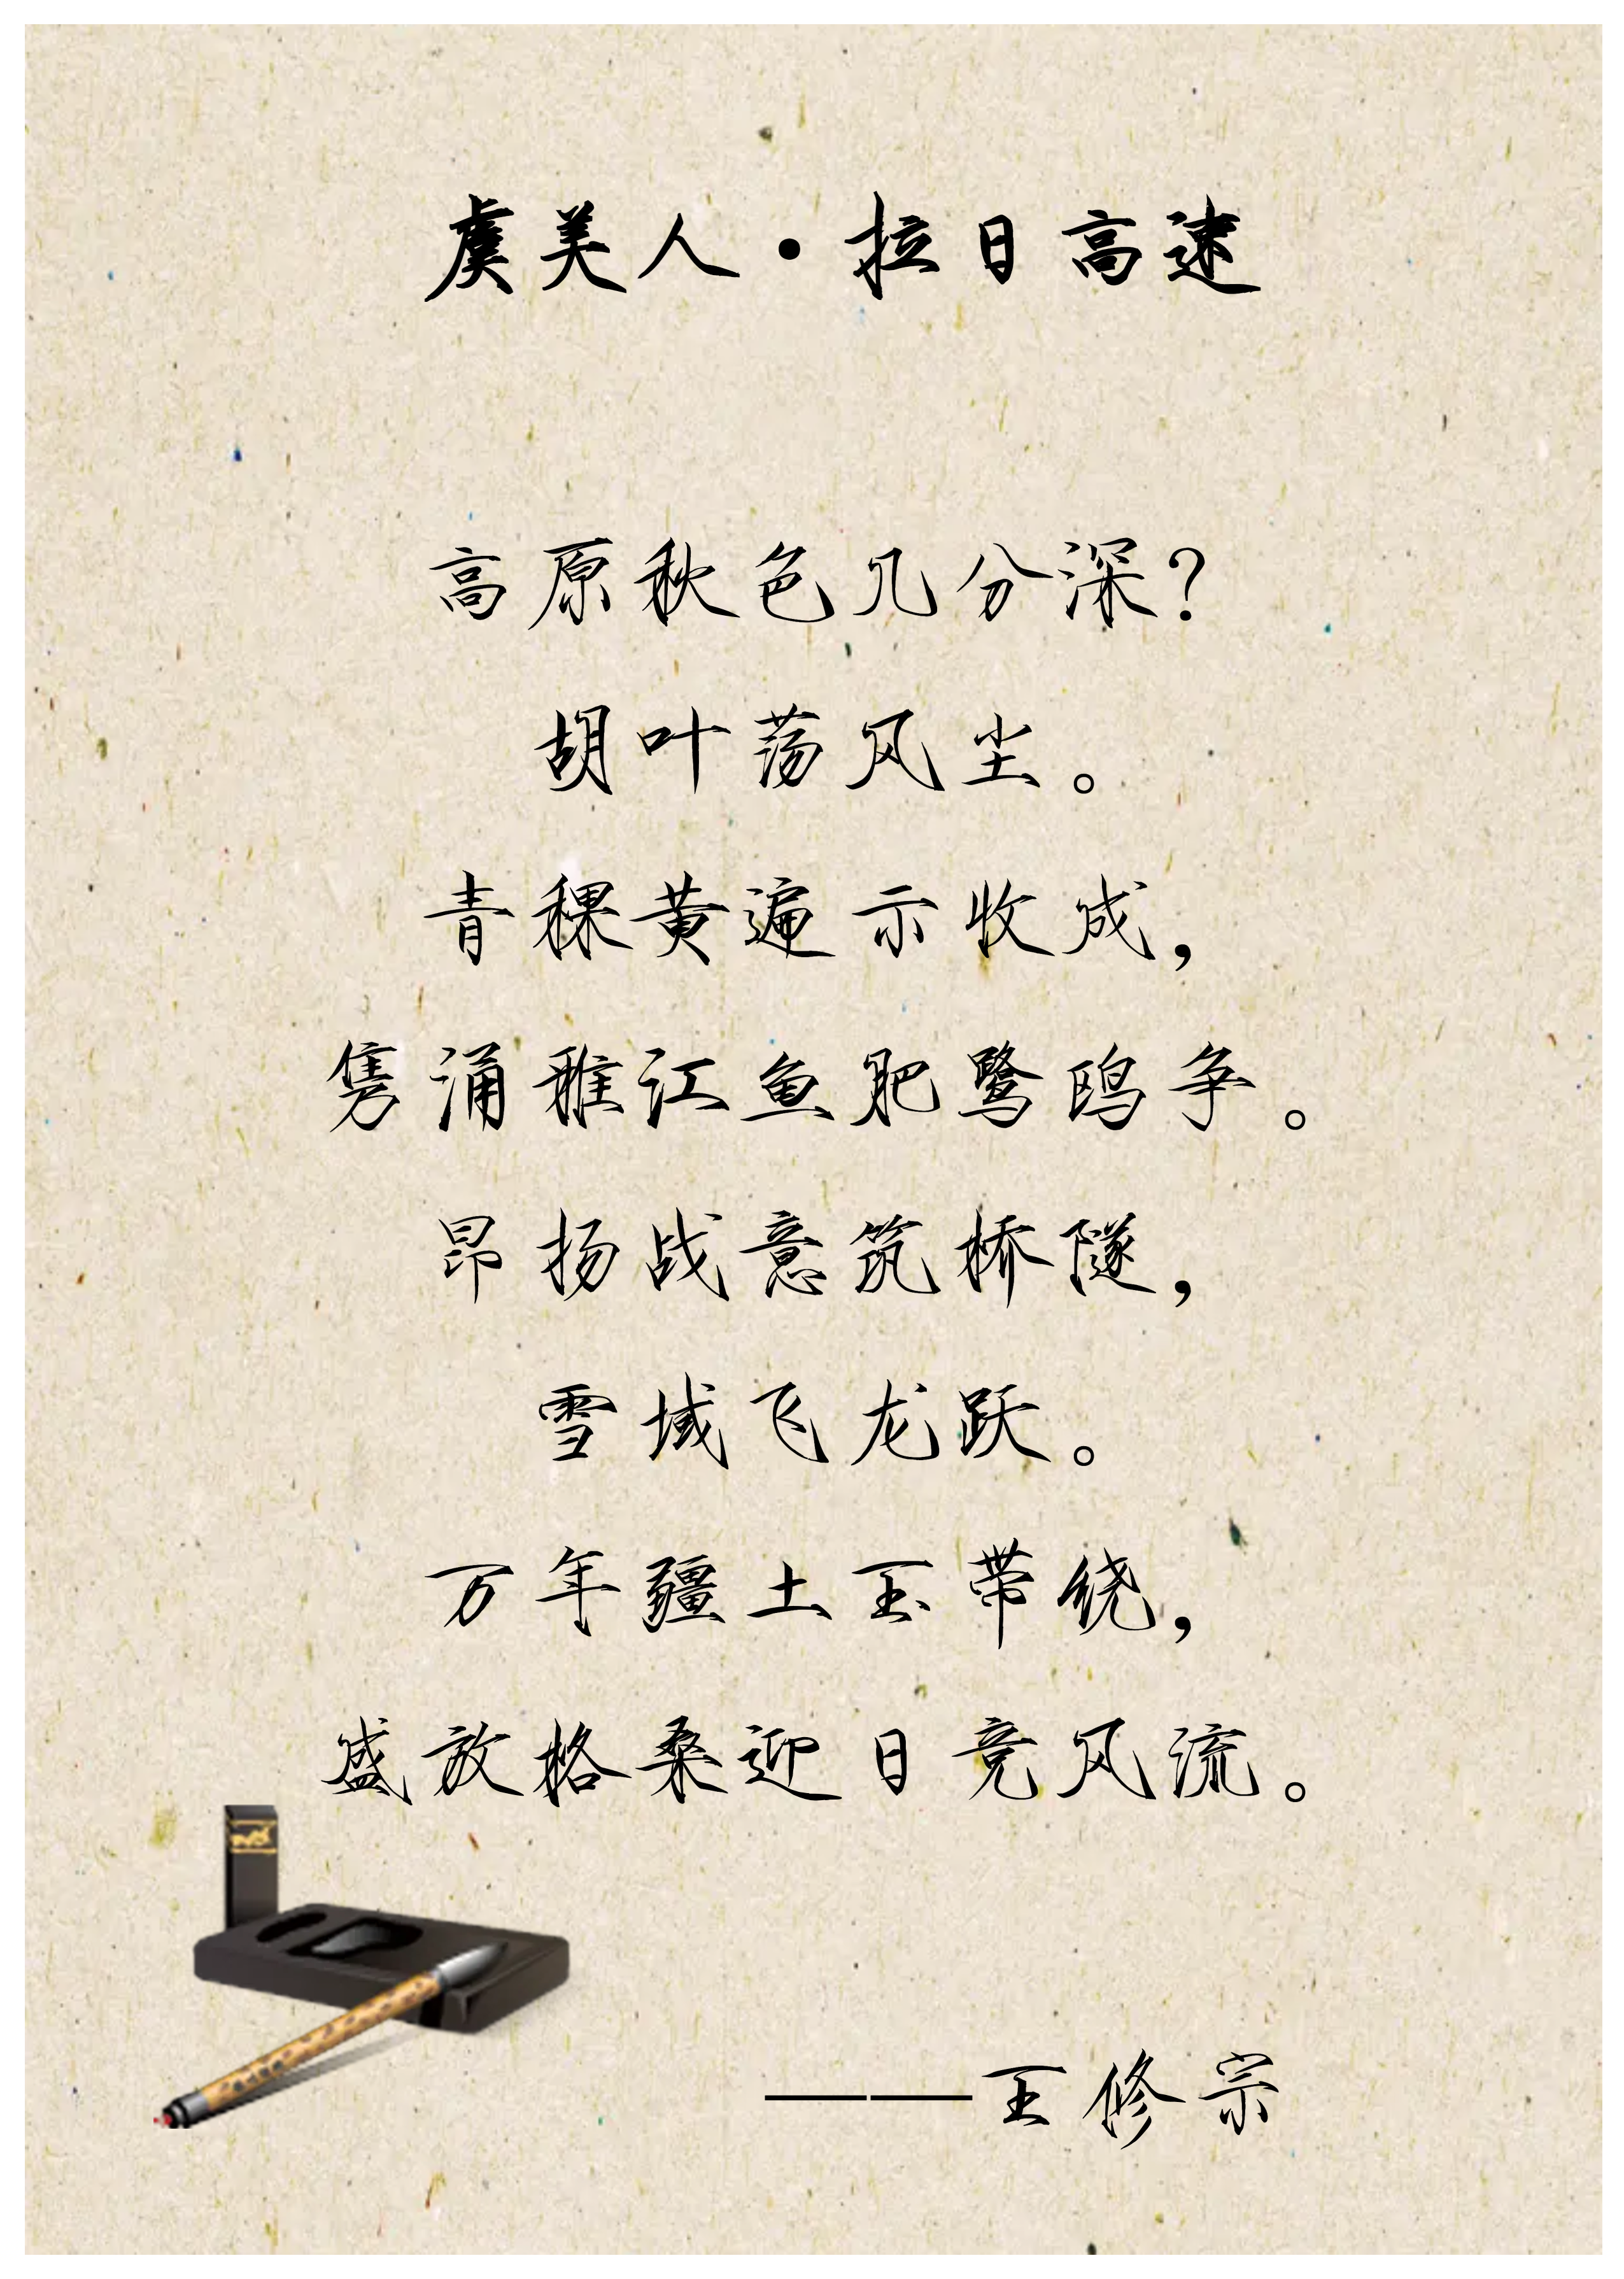 虞美人·拉日高速
高原秋色几分深？
胡叶荡风尘。
青稞黄遍示收成，
隽涌雅江鱼肥鹭鸥争。
昂扬战意筑桥隧，
雪域飞龙跃。
万年疆土玉带绕，
盛放格桑迎日竞风流。
——王修宗